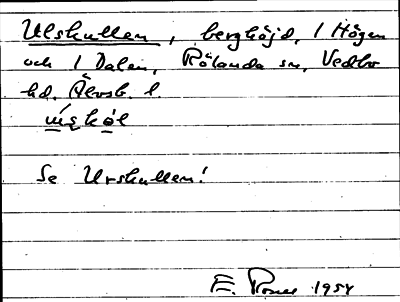 Ulskullen, berghöjd, 1 Högen
och 1 Dalen, Rölanda sn, Vedbo
hd. Älvsb. l.
Se Urskullen!
E. 1954